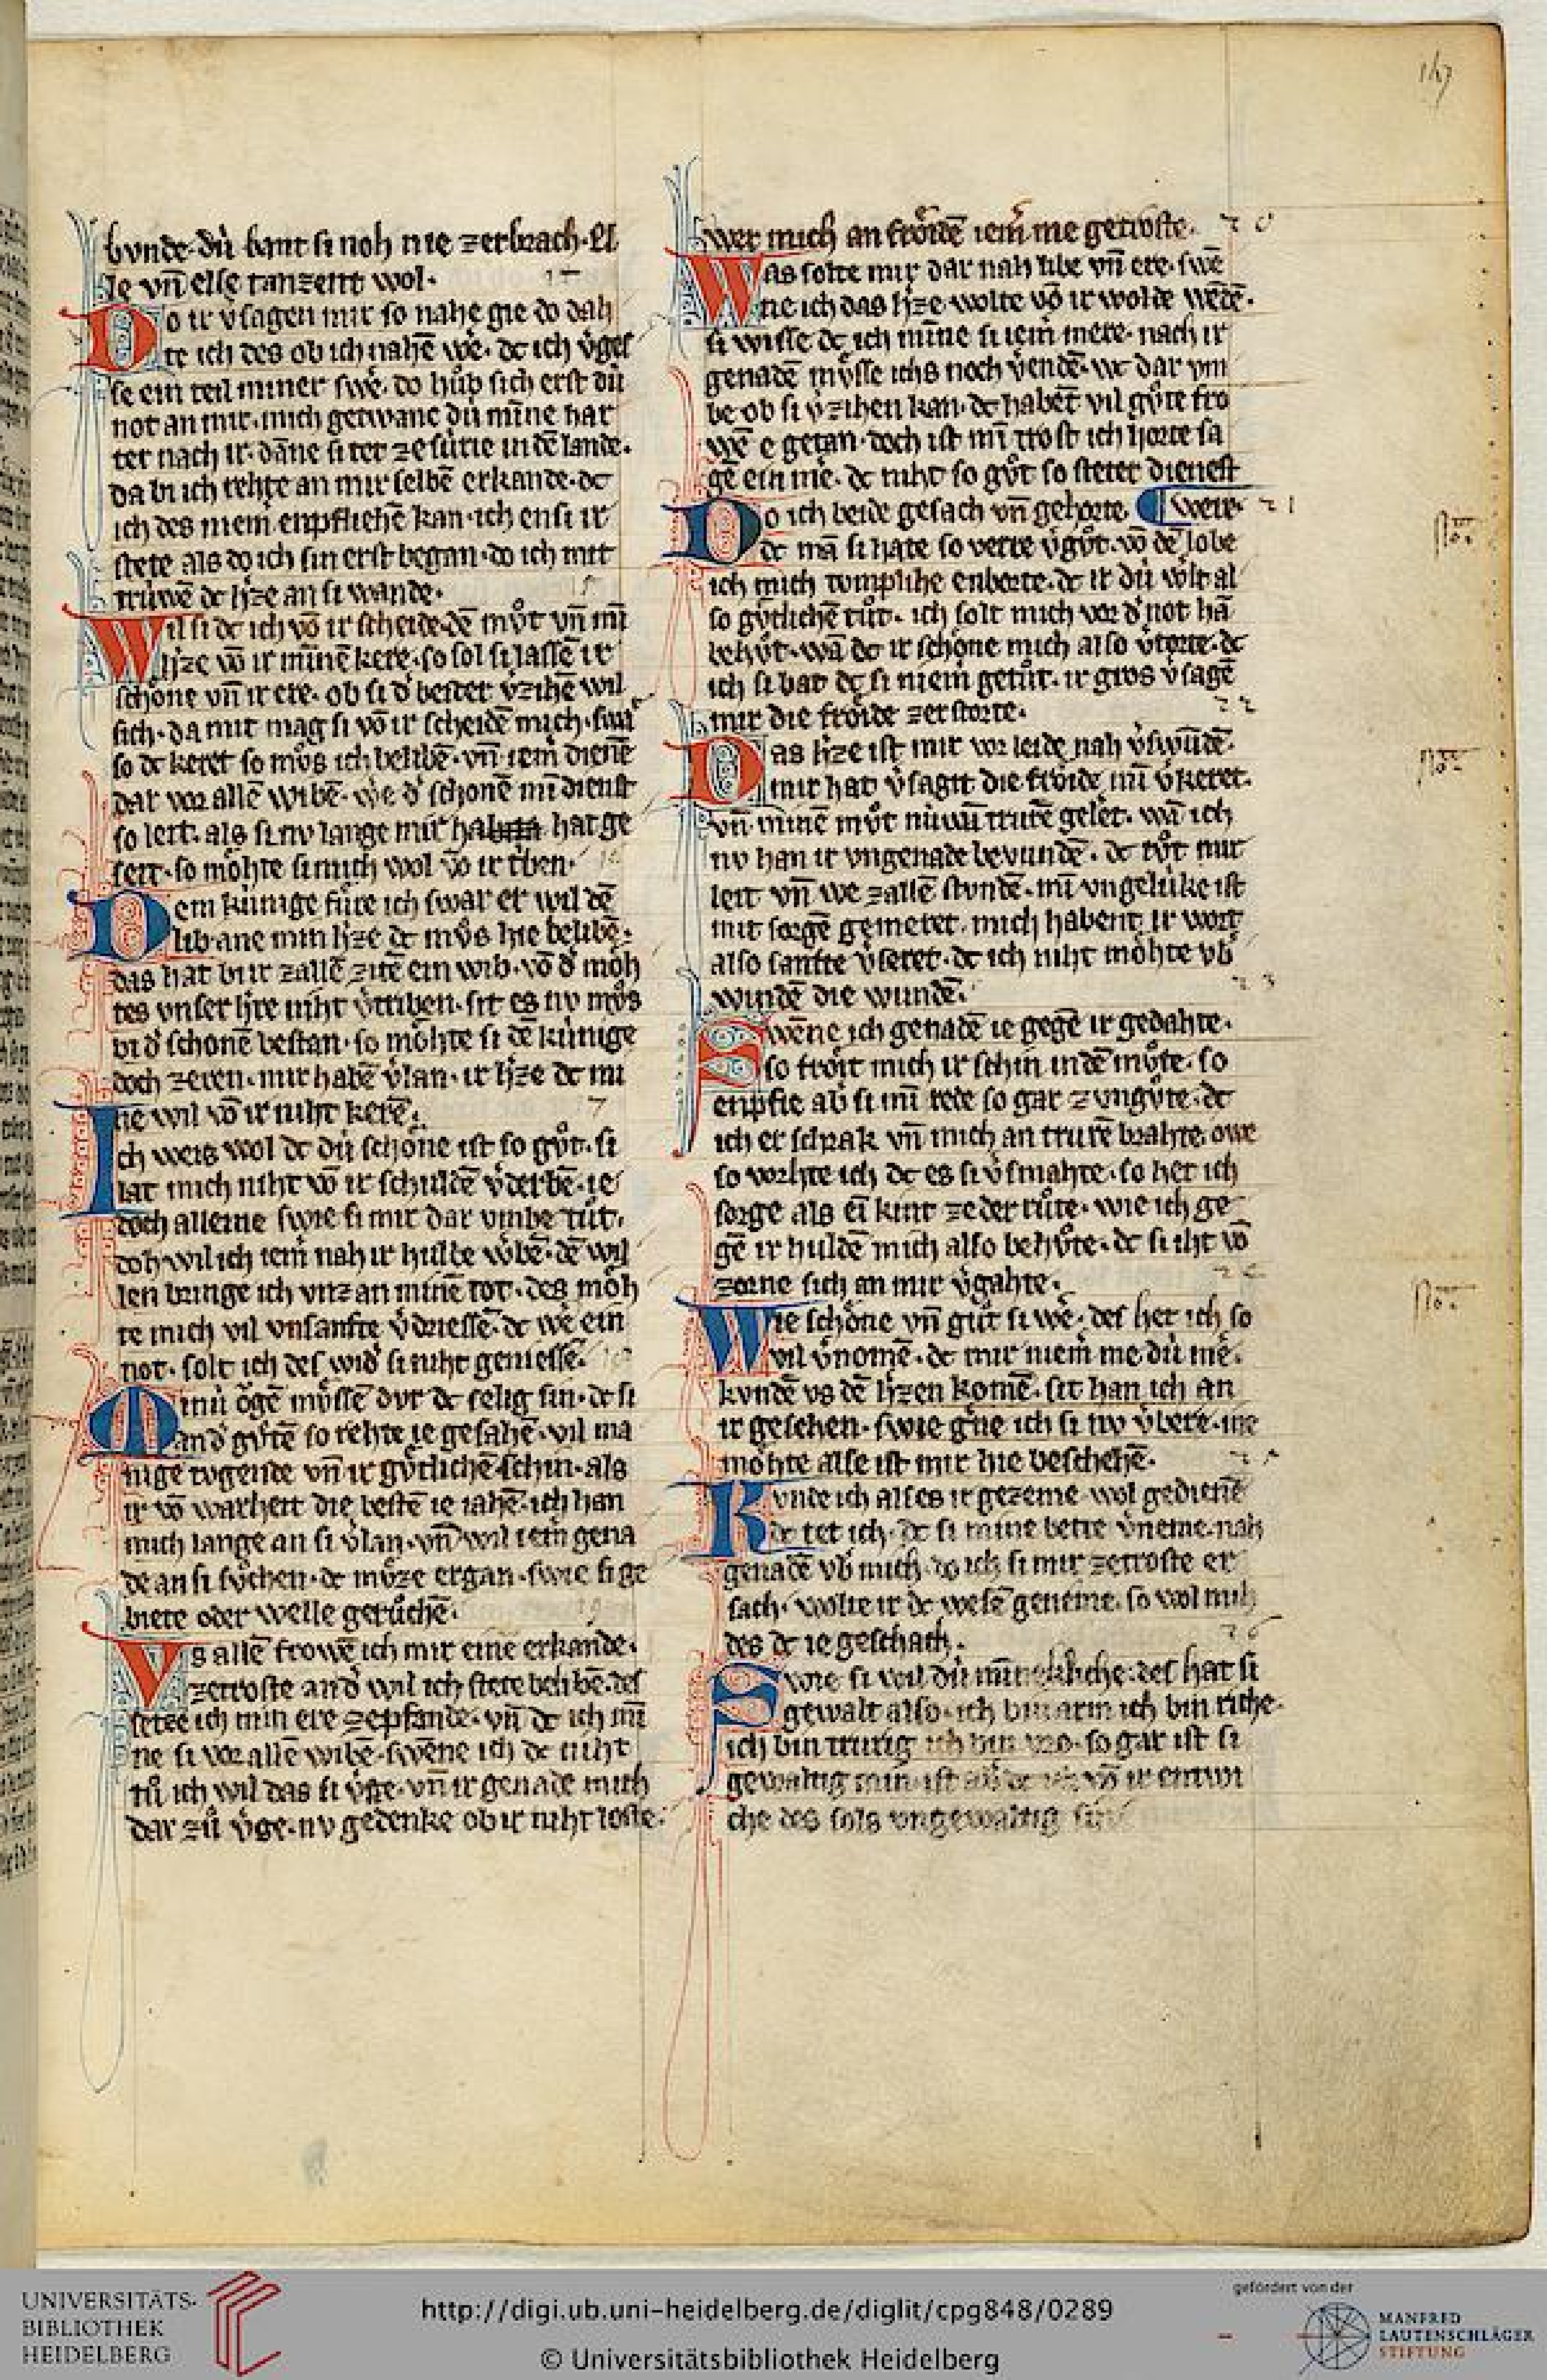 147
bvnde. dú bant si noh nie zerbrach. El
le vn̄ else tanzent wol.
Do ir v̓sagen mir so nahe gie do dah
te ich des ob ich nahē we̓. dc ich v̓ges
se ein teil miner swe̓. do hůb sich erst dú
not an mir. mich getwanc dú mīne har
ter nach ir. dāne si ter ze in dē lande.
da bi ich rehte an mir selbē erkande. dc
ich des niem̓ enpfliehē kan. ich en si ir
stete als do ich sin erst began. do ich mit
trúwē dc h̓ze an si wande.
Wil si dc ich vō ir scheide. dē můt vn̄ mī
h̓ze vō ir mīnē kere. so sol si lassē ir
schone vn̄ ir ere. ob si d̓ beider v̓zihē wil
sich. da mit mag si vō ir scheidē mich. swar
so dc keret so můs ich belibē. vn̄ iem̓ dienē
dar vor allē wibē. we̓ d̓ schonē mī dienst
so leit. als si nv lange mir hat ge
seit. so mőhte si mich wol vō ir tˢben.
Dem kúnige fúre ich swar er wil dē
lib. ane min h̓ze dc můs hie belibē.
das hat bi ir zallē zitē ein wib. vō d̓ mőh
tes vnser h̓re niht v̓triben. sit es nv můs
bi d̓ schonē bestan. so mőhte si dē kúnige
doch zeren. mir habē v̓lan. ir h̓ze dc mi
ne wil vō ir niht kerē.
Ich weis wol dc dú schőne ist so gůt. si
lat mich niht vō ir schuldē v̓derbē. ie
doch alleine swie si mir dar vmbe tůt.
doh wil ich iem̓ nah ir hulde we̓bē. dē wil
len bringe ich vnz an minē tot. des mőh
te mich vil vnsanfte v̓driessē. dc we̓ ein
not. solt ich des wid̓ si niht geniessē.
Minú ȯgē mv̊ssē dvr dc selig sin. dc si
an d̓ gv̊tē so rehte ie gesahē. vil ma
nige tvgende vn̄ ir gv̊tlichē schin. als
ir vō warheit die bestē ie iahē. ich han
mich lange an si v̓lan. vn̄ wil iem̓ gena
de an si sv̊chen. dc mv̊ze ergan. swie si ge
biete oder welle gerůchē.
Vs allē frowē ich mir eine erkande.
zetroste and̓ wil ich stete belibē. des
setze ich min ere zepfande. vn̄ dc ich mī
ne si vor allē wibē. swēne ich dc niht
tů ich wil das si . vn̄ ir genade mich
dar zů . nv gedenke ob ir niht loste.
wer mich an frőidē iem̓ me getroste.
Was solte mir dar nah libe vn̄ ere. swē
ne ich das h̓ze wolte vō ir wolde wēdē.
si wisse dc ich mīne si iem̓ mere. nach ir
genadē mv̊sse ichs noch v̓endē. wc dar vm
be ob si v̓zihen kan. dc habēt vil gv̊te fro
wē e getan. doch ist mī trost ich horte sa
gē ein me̓. dc niht so gůt so steter dienest
Do ich beide gesach vn̄ gehorte. ¶ were.
dc mā si hate so verre v̓gůt. vō dē lobe
ich mich tomplihe enborte. dc ir dú welt al
so gv̊tlichē tůt. ich solt mich vor d̓ not hā
behv̊t. wā dc ir schőne mich also v̓torte. dc
ich si bat dc si niem̓ getůt. ir gros v̓sagē
mir die frőide zerstorte.
Das h̓ze ist mir vor leide nah v̓swūdē.
mir hat v̓sagit die frőide mī v̓keret.
vn̄ minē můt núwā trurē gelēt. wā ich
nv han ir vngenade bevundē. dc tůt mir
leit vn̄ we zallē stvndē. mī vngelúke ist
mit sorgē gemeret. mich habent ir wort
also sanfte v̓seret. dc ich niht mőhte vb̓
windē die wundē.
Swēne ich genadē ie gegē ir gedahte.
so frőit mich ir schin in dē mv̊te. so
enpfie ab̓ si mī rede so gar zvngv̊te. dc
ich erschrak vn̄ mich an trurē brahte. owe
so vorhte ich dc es si v̓smahte. so het ich
sorge als eī kint ze der růte. wie ich ge
gē ir huldē mich also behv̊te. dc si iht vō
zorne sich an mir v̓gahte.
Wie schőne vn̄ gůt si we̓. des het ich so
vil v̓nomē. dc mir niem̓ me dú me̓.
kvndē vs dē h̓zen komē. sit han ich an
ir gesehen. swie g̓ne ich si nv v̓bere. me
mőhte alse ist mir hie beschehē.
Kvnde ich als es ir gezeme wol gedienē
dc tet ich. dc si mine bette v̓neme. nah
genadē vb̓ mich. do ich si mir zetroste er
sach. wolte ir dc wesē geneme. so wol mih
des dc ie geschach.
Swie si wil dú mīnekliche. des hat si
gewalt also. ich bin arm ich bin riche.
ich bin trurig ich bin vro. so gar ist si
gewaltig min. ist ab̓ dc ich vō ir entwi
che des sols vngewaltig sin
UNIVERSITÄTS-
BIBLIOTHEK
HEIDELBERG
http://digi.ub.uni-heidelberg.de/diglit/cpg848/0289
© Universitätsbibliothek Heidelberg
gefördert von der
MANFRED
LAUTENSCHLÄGER
STIFTUNG